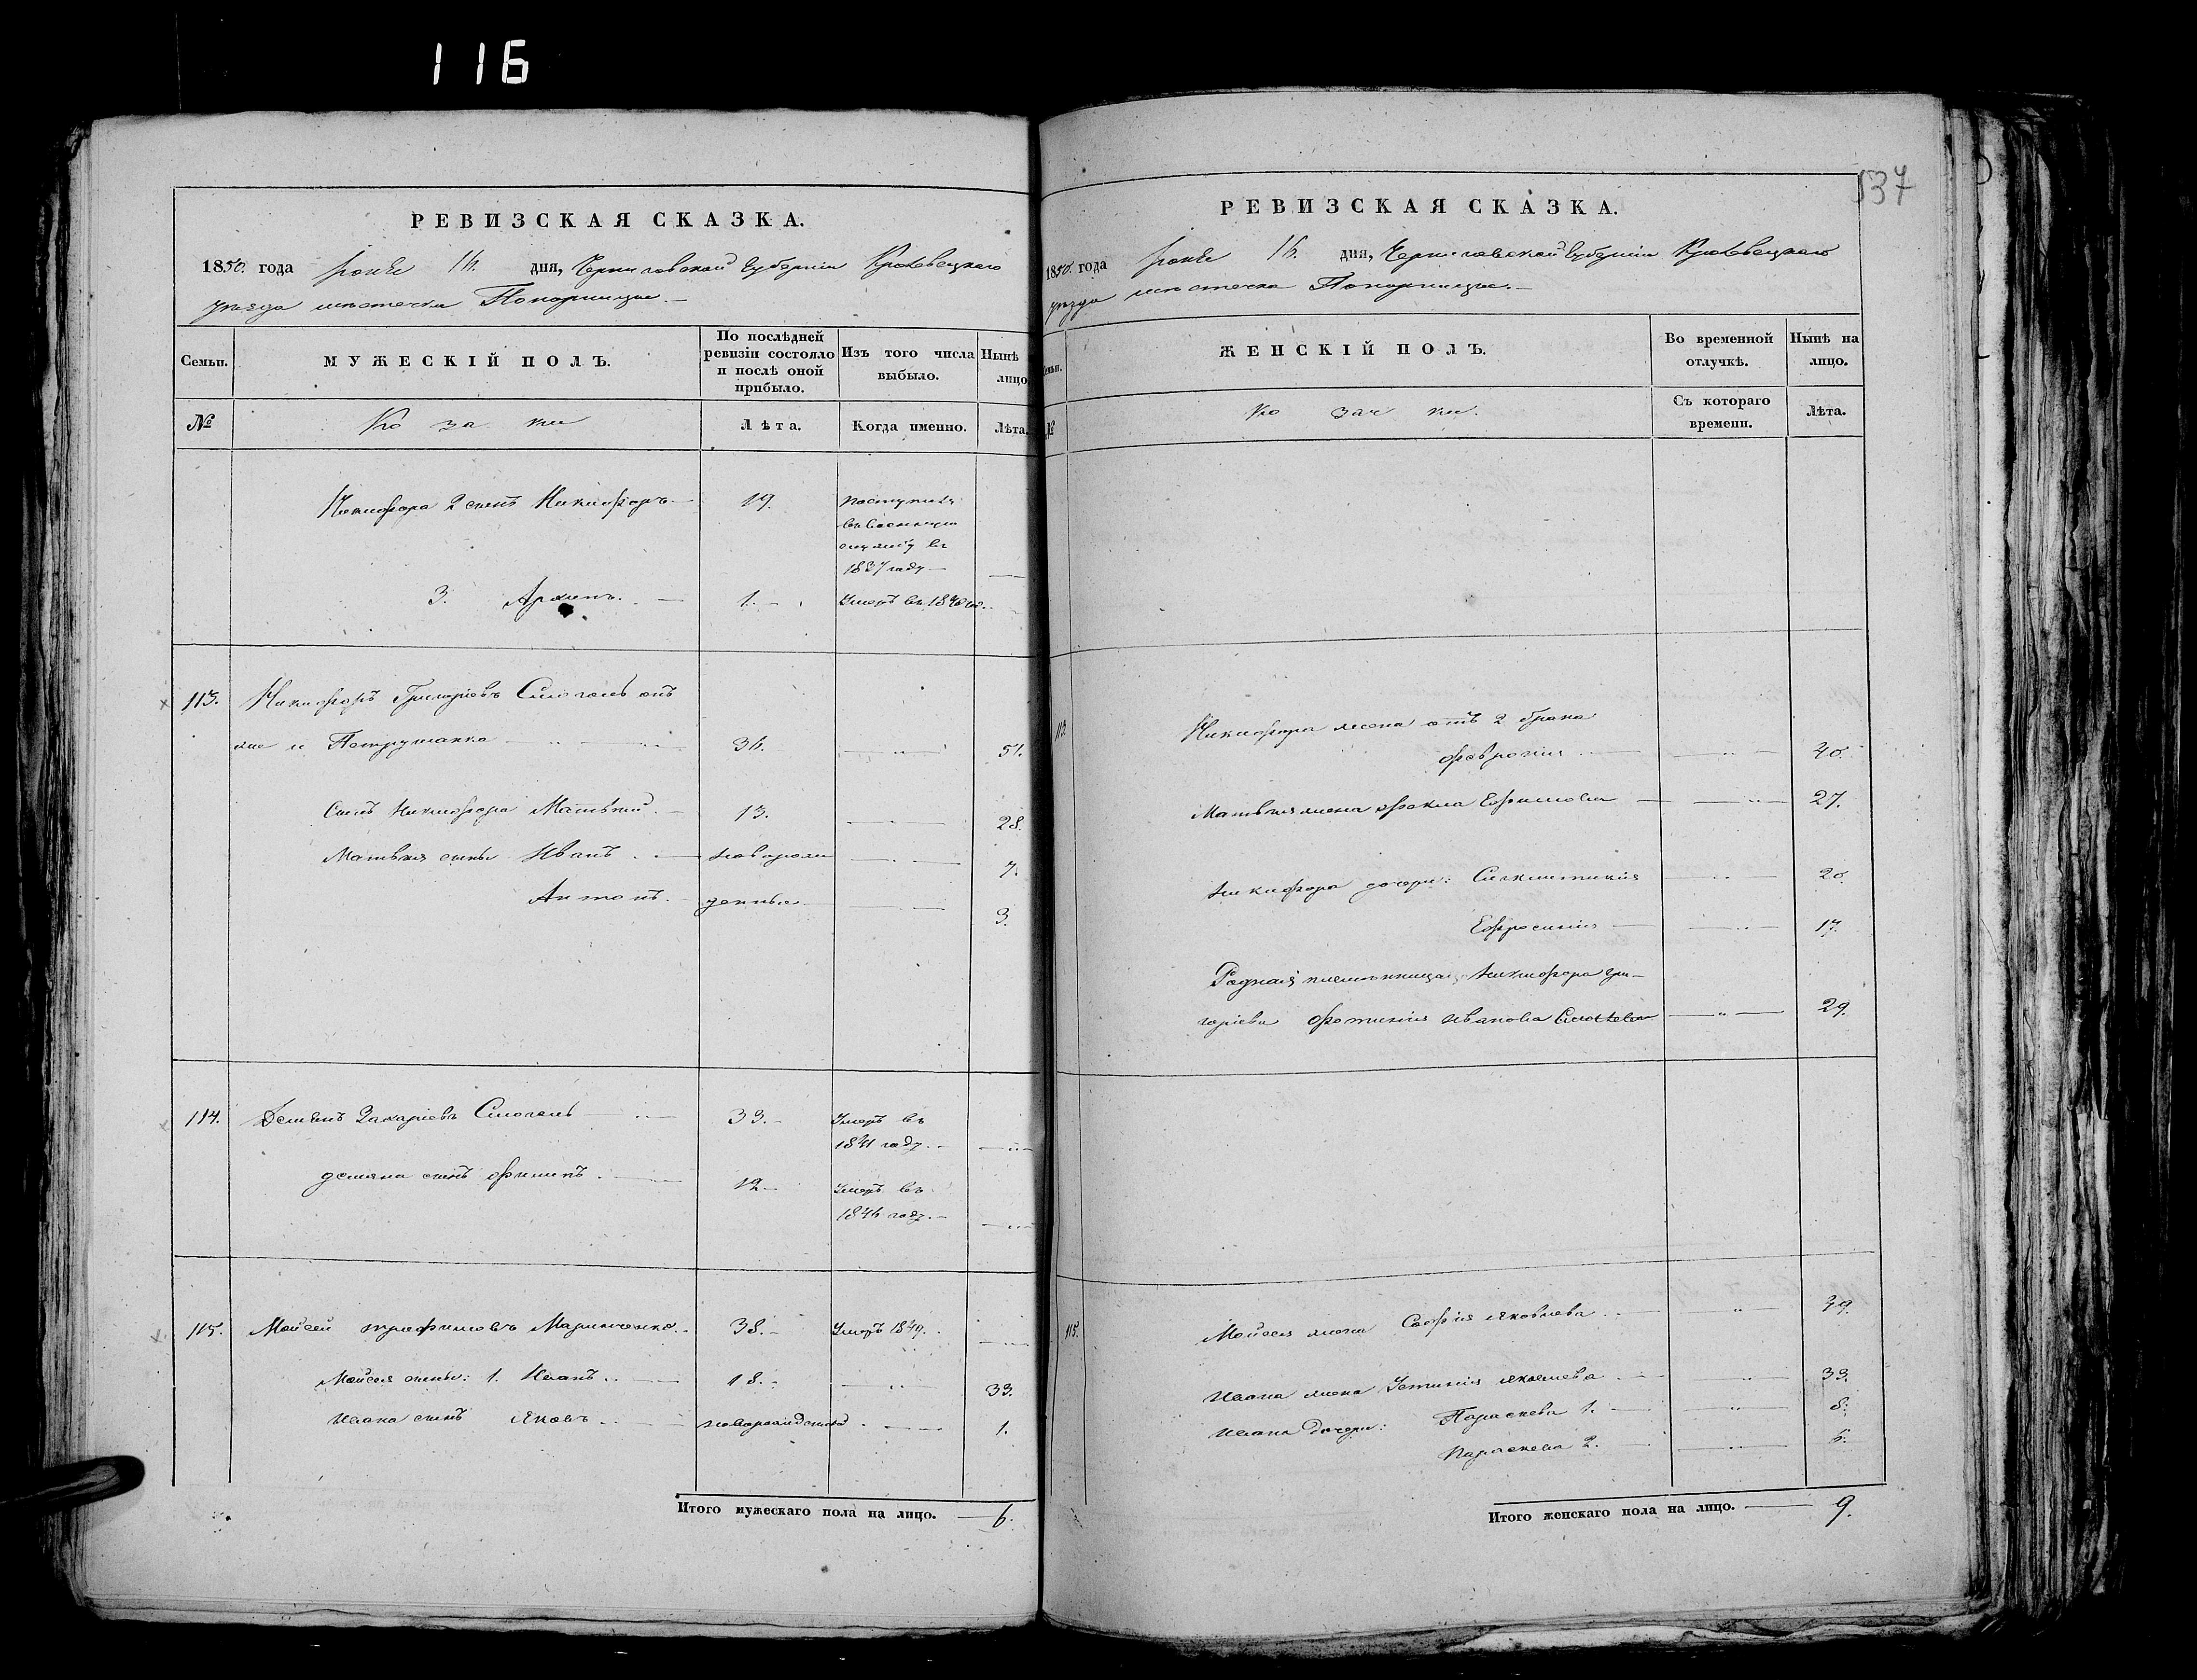 116
РЕВИЗСКАЯ СКАЗКА.
1850. года 16. дня, Черниговской Губернии Кролевецкаго
уезда местечка Понорницы.
Семьи.
МУЖЕСКІЙ ПОЛЪ.
По послѣдней ревизіи состояло и послѣ оной прибыло.
Изъ того числа выбыло.
Нынѣ лицо
№
Ко за ки
Лѣта.
Когда именно.
Лѣта.
Никифора 2 сынъ Никифоръ 19. поступилъ
въ военную
службу въ
1837 году
3. Архипъ. 1. Умеръ въ 1840
113. Никифоръ Григорьевъ онъ
же и Петрушенко 36. 51.
Сынъ Никифора Матвѣй 13. 28.
Матвѣя сыны Иванъ новорож 7.
Антонъ. денные 3.
114. Демьянъ Захарьевъ 33. Умеръ въ
1841 году.
Демяна сынъ Филипъ. 12 Умеръ въ
1844 году.
115. Мойсей Трофимовъ Маринченко. 38. Умеръ 1849.
Мойсея сыны: 1. Иванъ 18. 33.
Ивана сынъ Яковъ новорожденный 1.
Итого мужескаго пола на лицо. 6.
537
РЕВИЗСКАЯ СКАЗКА.
1850. года 16. дня, Черниговской Губернии Кролевецкаго
уезда местечка Понорницы.
Семьи.
ЖЕНСКІЙ ПОЛЪ.
Во временной отлучкѣ.
Нынѣ на лицо.
№
Ко зач ки.
Съ котораго времени.
Лѣта.
113 Никифора жена отъ 2 брака
Февронія 40.
Матвѣя жена Фекла Ефимова 27.
Никифора дочери: Синклитикія 20.
Ефросинія 17.
Родная племянница Никифора Гри-
горіева Фотинія Иванова 29.
115. Мойсея жена Софія Яковлева 49.
Ивана жена Устинія Яковлева 33.
Ивана дочери: Параскева 1. 8.
Параскева 2. 6.
Итого женскаго пола на лицо. 9.